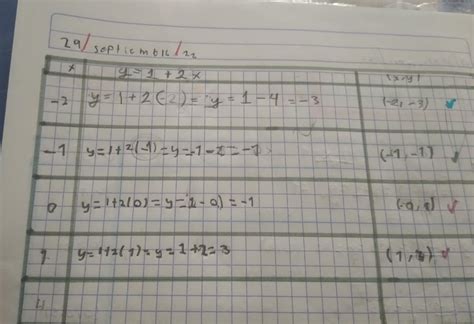 29/septiembre/22
x y=1+2x (x,y)
-2 y=1+2(-2)=y=1-4=-3 (-2,-3)
-1 y=1+2(-1)=y=1-2=-1 (-1,-1)
0 y=1+2(0)=y=1-0)=-1
1 y=1+2(1)=y=1+2=3